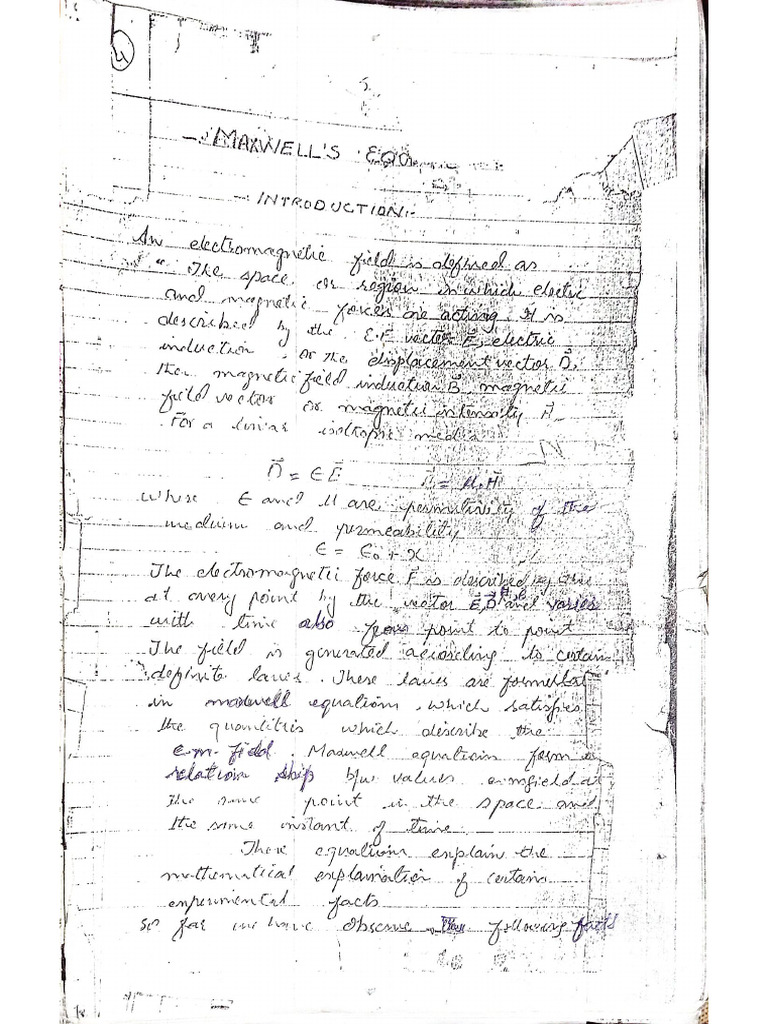 4
MAXWELL'S EQ
INTRODUCTION:-
An electromagnetic field is defined as
" The space or region in which electric
and magnetic forces are acting. It is
described by the E.F vector E⃗, electric
induction or the displacement vector D⃗,
the magnetic field induction B⃗, magnetic
field vector or magnetic intensity H⃗
For a linear isotropic media
D⃗ = ϵE⃗ = μ.H⃗
where ϵ and μ are permitivity of the
medium and permeability
ϵ = ϵ₀ + x
The electromagnetic force F⃗ is described by
at every point by the vector E⃗, D⃗ and varies
with time also from point to point
The field is generated according to certain
definite laws. These laws are
in maxwell equations, which satisfies
the quantities which describe the
e.m. field. Maxwell equations form a
relation ship b/w values at
the same point in the space and
the same instant of time.
These equations explain the
mathematical explaination of certain
experimental facts
so far we have observe following facts